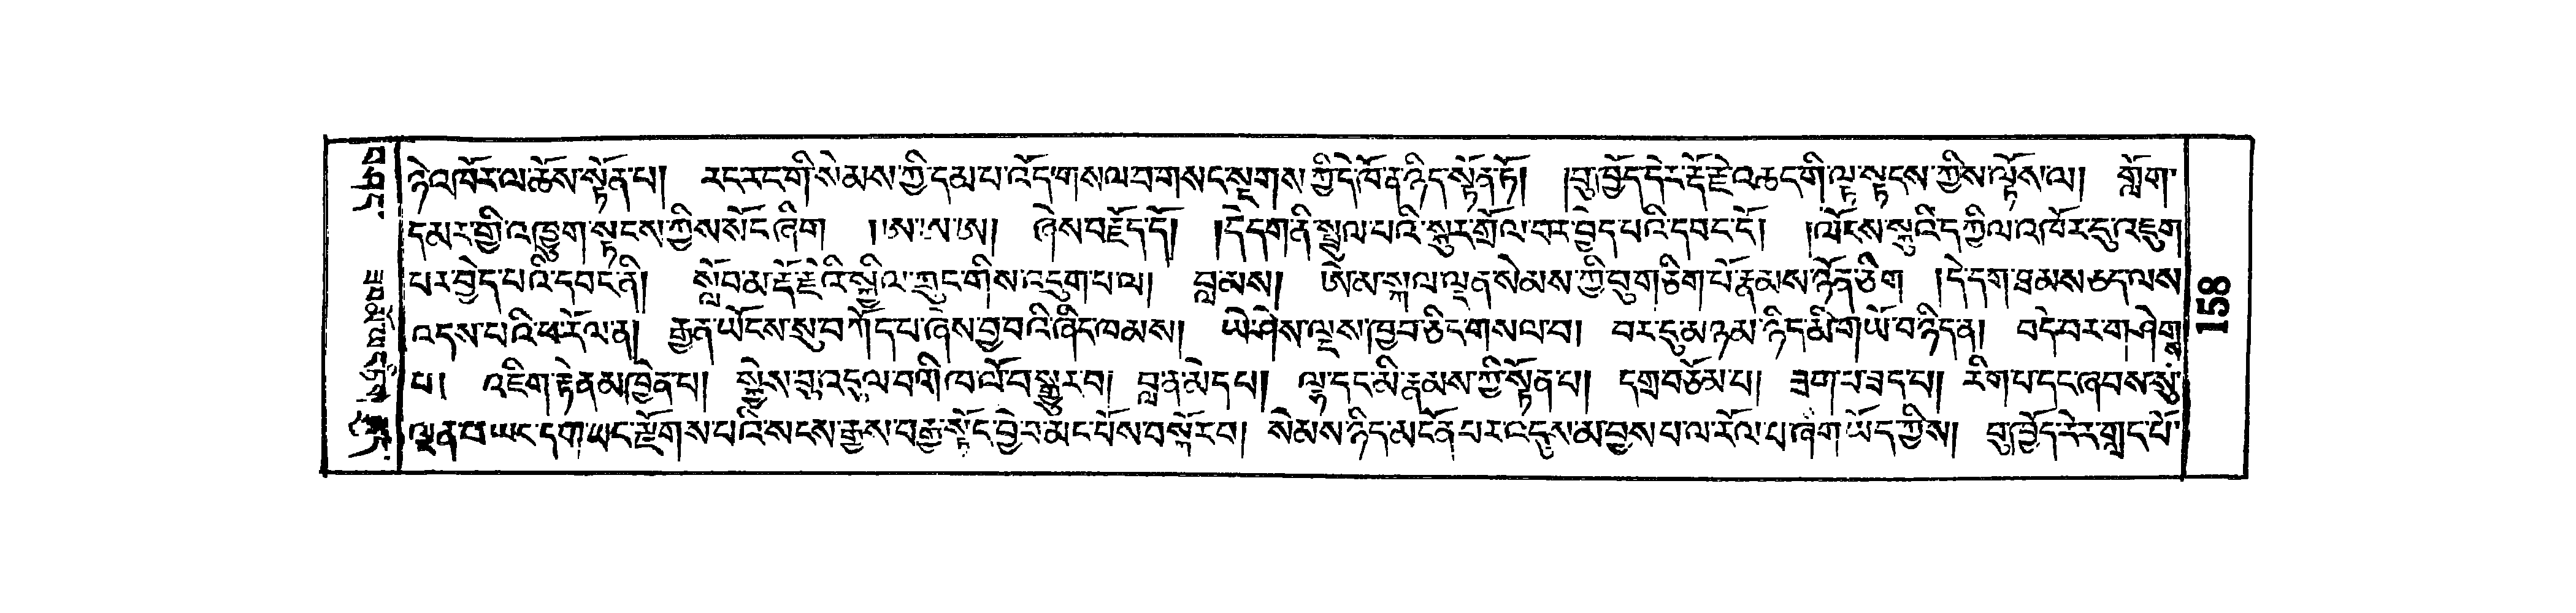 ཉེ་འཁོར་ལ་ཆོས་སྟོན་པ། རང་རང་གི་སེམས་ཀྱི་དམ་པ་འོད་གསལ་བ་གསང་སྔགས་ཀྱི་དེ་ཁོ་ན་ཉིད་སྟོན་ཏོ། །བུ་ཁྱོད་དེར་རྡོ་རྗེ་འཆང་གི་ལྟ་སྟངས་ཀྱིས་ལྟོས་ལ། གློག་
དམར་གྱི་འཁྱུག་སྟངས་ཀྱིས་སོང་ཞིག །ཨ་ཨ་ཨ། ཞེས་བརྗོད་དོ། །དེ་དག་ནི་སྤྲུལ་པའི་སྐུར་གྲོལ་བར་བྱེད་པའི་དབང་ངོ། །ལོངས་སྐུའི་དཀྱིལ་འཁོར་དུ་འཇུག
པར་བྱེད་པའི་དབང་ནི། སློབ་མ་རྡོ་རྗེའི་སྐྱིལ་ཀྲུང་གིས་འདུག་པ་ལ། བླ་མས། ཨེ་མ་སྐལ་ལྡན་སེམས་ཀྱི་བུ་གཅིག་པོ་རྣམས་ཉོན་ཅིག །དེ་དག་ཐམས་ཅད་ལས
འདས་པའི་ཕ་རོལ་ན། རྒྱན་ཡོངས་སུ་བཀོད་པ་ཞེས་བྱ་བའི་ཞིང་ཁམས། ཡེ་ཤེས་ལྔས་ཁྱབ་ཅིང་གསལ་བ། བར་དུ་མཉམ་ཉིད་མི་གཡོ་བ་ཉིད་ན། བདེ་བར་གཤེགས
པ། འཇིག་རྟེན་མཁྱེན་པ། སྐྱེས་བུ་འདུལ་བའི་ཁ་ལོ་བསྒྱུར་བ། བླ་ན་མེད་པ། ལྷ་དང་མི་རྣམས་ཀྱི་སྟོན་པ། དགྲ་བཅོམ་པ། ཟག་པ་ཟད་པ། རིག་པ་དང་ཞབས་སུ་
ལྡན་པ་ཡང་དག་པར་རྫོགས་པའི་སངས་རྒྱས་བརྒྱ་སྟོང་བྱེ་བ་མང་པོས་བསྐོར་བ། སེམས་ཉིད་མངོན་པར་འདུས་མ་བྱས་པ་ལ་རོལ་པ་ཞིག་ཡོད་ཀྱིས། བུ་ཁྱོད་དེར་གླང་པོ་
158